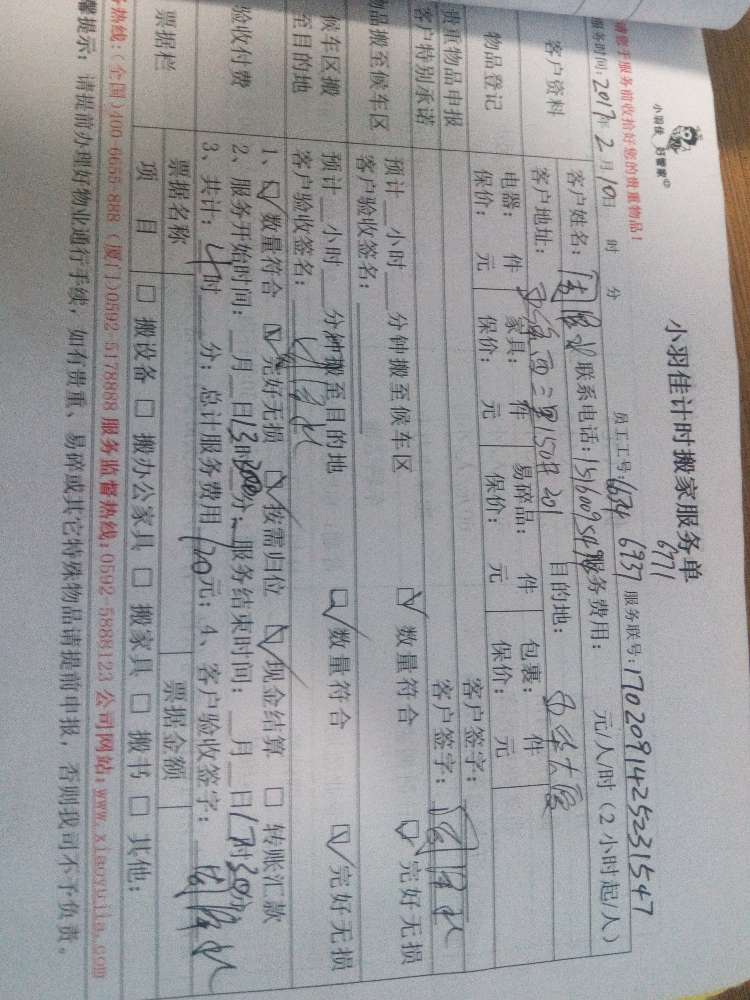 小羽佳 好管家
小羽佳计时搬家服务单
请您于服务前收拾好您的贵重物品!
6771
服务时间: 2017年 2月 10日 时 分 员工工号: 6937 服务联号: 170209142523 1547
客户资料 客户姓名: 联系电话: 服务费用: 元/人/时(2小时起/人)
客户地址: 目的地:
物品登记 电器: 件 家具: 件 易碎品: 件 包裹: 件
保价: 元 保价: 元 保价: 元 保价: 元
贵重物品申报 客户签字:
客户特别承诺 客户签字:
物品搬至候车区 预计__小时__分钟搬至候车区 ☑ 数量符合 ☑ 完好无损
客户验收签名:
候车区搬至目的地 预计__小时__分钟搬至目的地 ☑ 数量符合 ☑ 完好无损
客户验收签名:
验收付费 1、☑ 数量符合 ☑ 完好无损 ☑ 按需归位 ☑ 现金结算 □ 转账汇款
2、服务开始时间:__月__日13时30分;服务结束时间:__月__日17时30分
3、共计: 4时__分;总计服务费用120元;4、客户验收签字:
票据栏 票据名称 票据金额
项目 □ 搬设备 □ 搬办公家具 □ 搬家具 □ 搬书 □ 其他:
热线:(全国)400-6655-888 (厦门)0592-5178888 服务监督热线:0592-5888123 公司网站:www.xiaoyujia.com
馨提示: 请提前办理好物业通行手续,如有贵重、易碎或其它特殊物品请提前申报,否则我司不予负责。